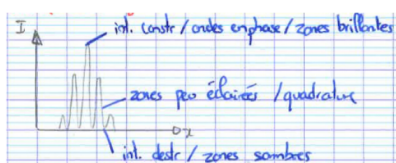 I
int. constr / ondes en phase / zones brillantes
zones peu éclairées / quadrature
x
int. destr / zones sombres